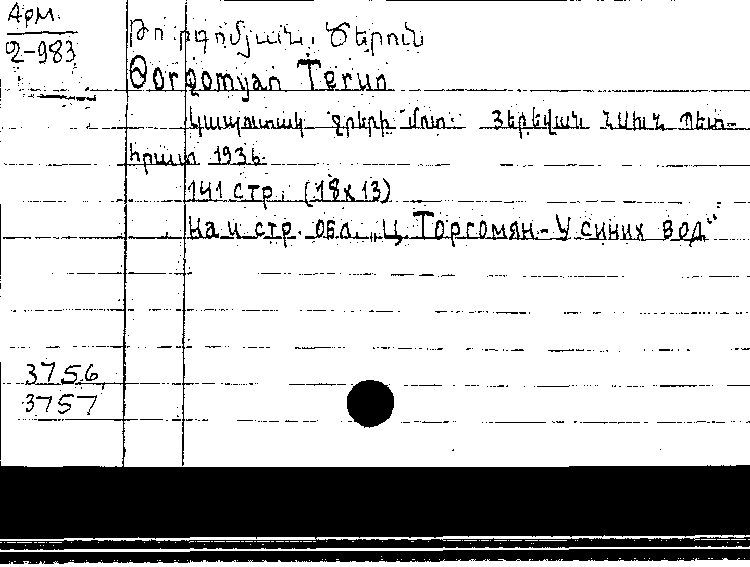 Арм.
2-983
Թորգոմյան, Ծերուն
Թorgomyan Terun
Կապուտակ ջրերի մոտ. Յերեվան ՀՍԽՀ Պետ-
հրատ 1936.
141 стр. (18x13)
На и стр. обл. „Ц. Торгомян-У синих вод“
3756,
3757